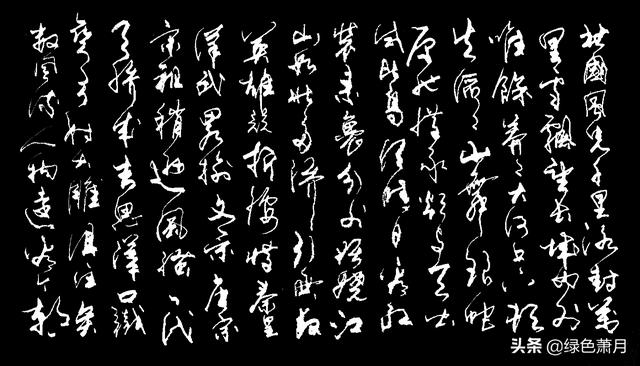 北國風光千里冰封萬
里雪飄望長城内外
惟餘莽莽大河上下頓
失滔滔山舞銀蛇
原馳蠟象欲與天公
試比高須晴日看紅
裝素裹分外妖嬈江
山如此多嬌引無數
英雄競折腰惜秦皇
漢武畧輸文采唐宗
宋祖稍遜風騷一代
天驕成吉思漢只識
彎弓射大雕俱往矣
數風流人物還看今朝
头条 @绿色萧月